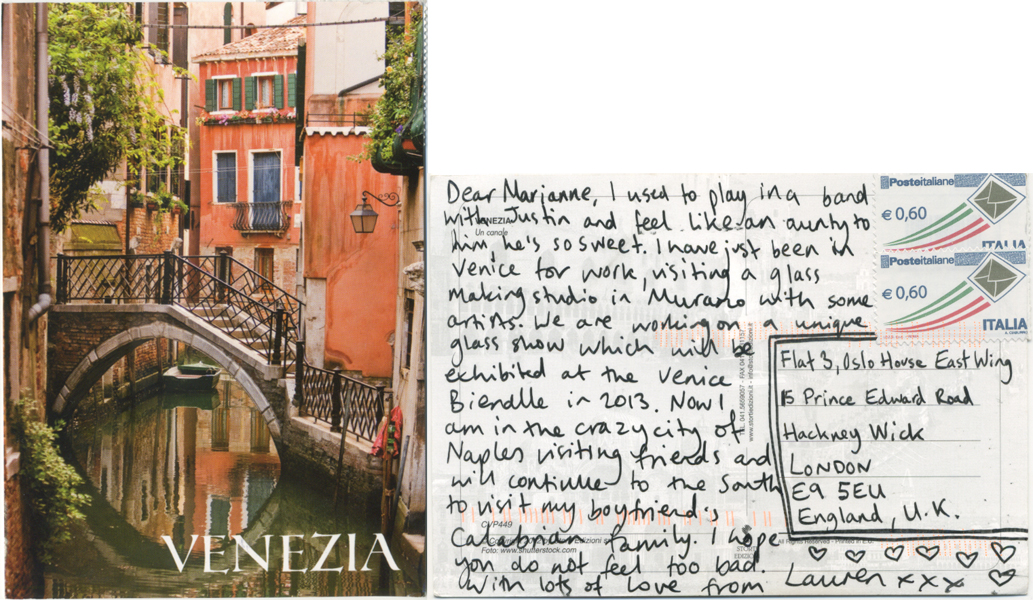 VENEZIA
Dear Marianne, I used to play in a band
with Justin and feel like an aunty to
him, he's so sweet. I have just been in
Venice for work, visiting a glass
making studio in Murano with some
artists. We are working on a unique
glass show which will be
exhibited at the Venice
Bienalle in 2013. Now I
am in the crazy city of
Naples visiting friends and
will continue to the South
to visit my boyfriend's
Calabrian family. I hope
you do not feel too bad.
With lots of love from
Lauren xxx
VENEZIA
Un canale
CVP449
Foto: www.shutterstock.com
All Rights Reserved - Printed in E.U.
www.stortiedizioni.it
Posteitaliane
€ 0,60
ITALIA
Posteitaliane
€ 0,60
ITALIA
Flat 3, Oslo House East Wing
15 Prince Edward Road
Hackney Wick
LONDON
E9 5EU
England, U.K.